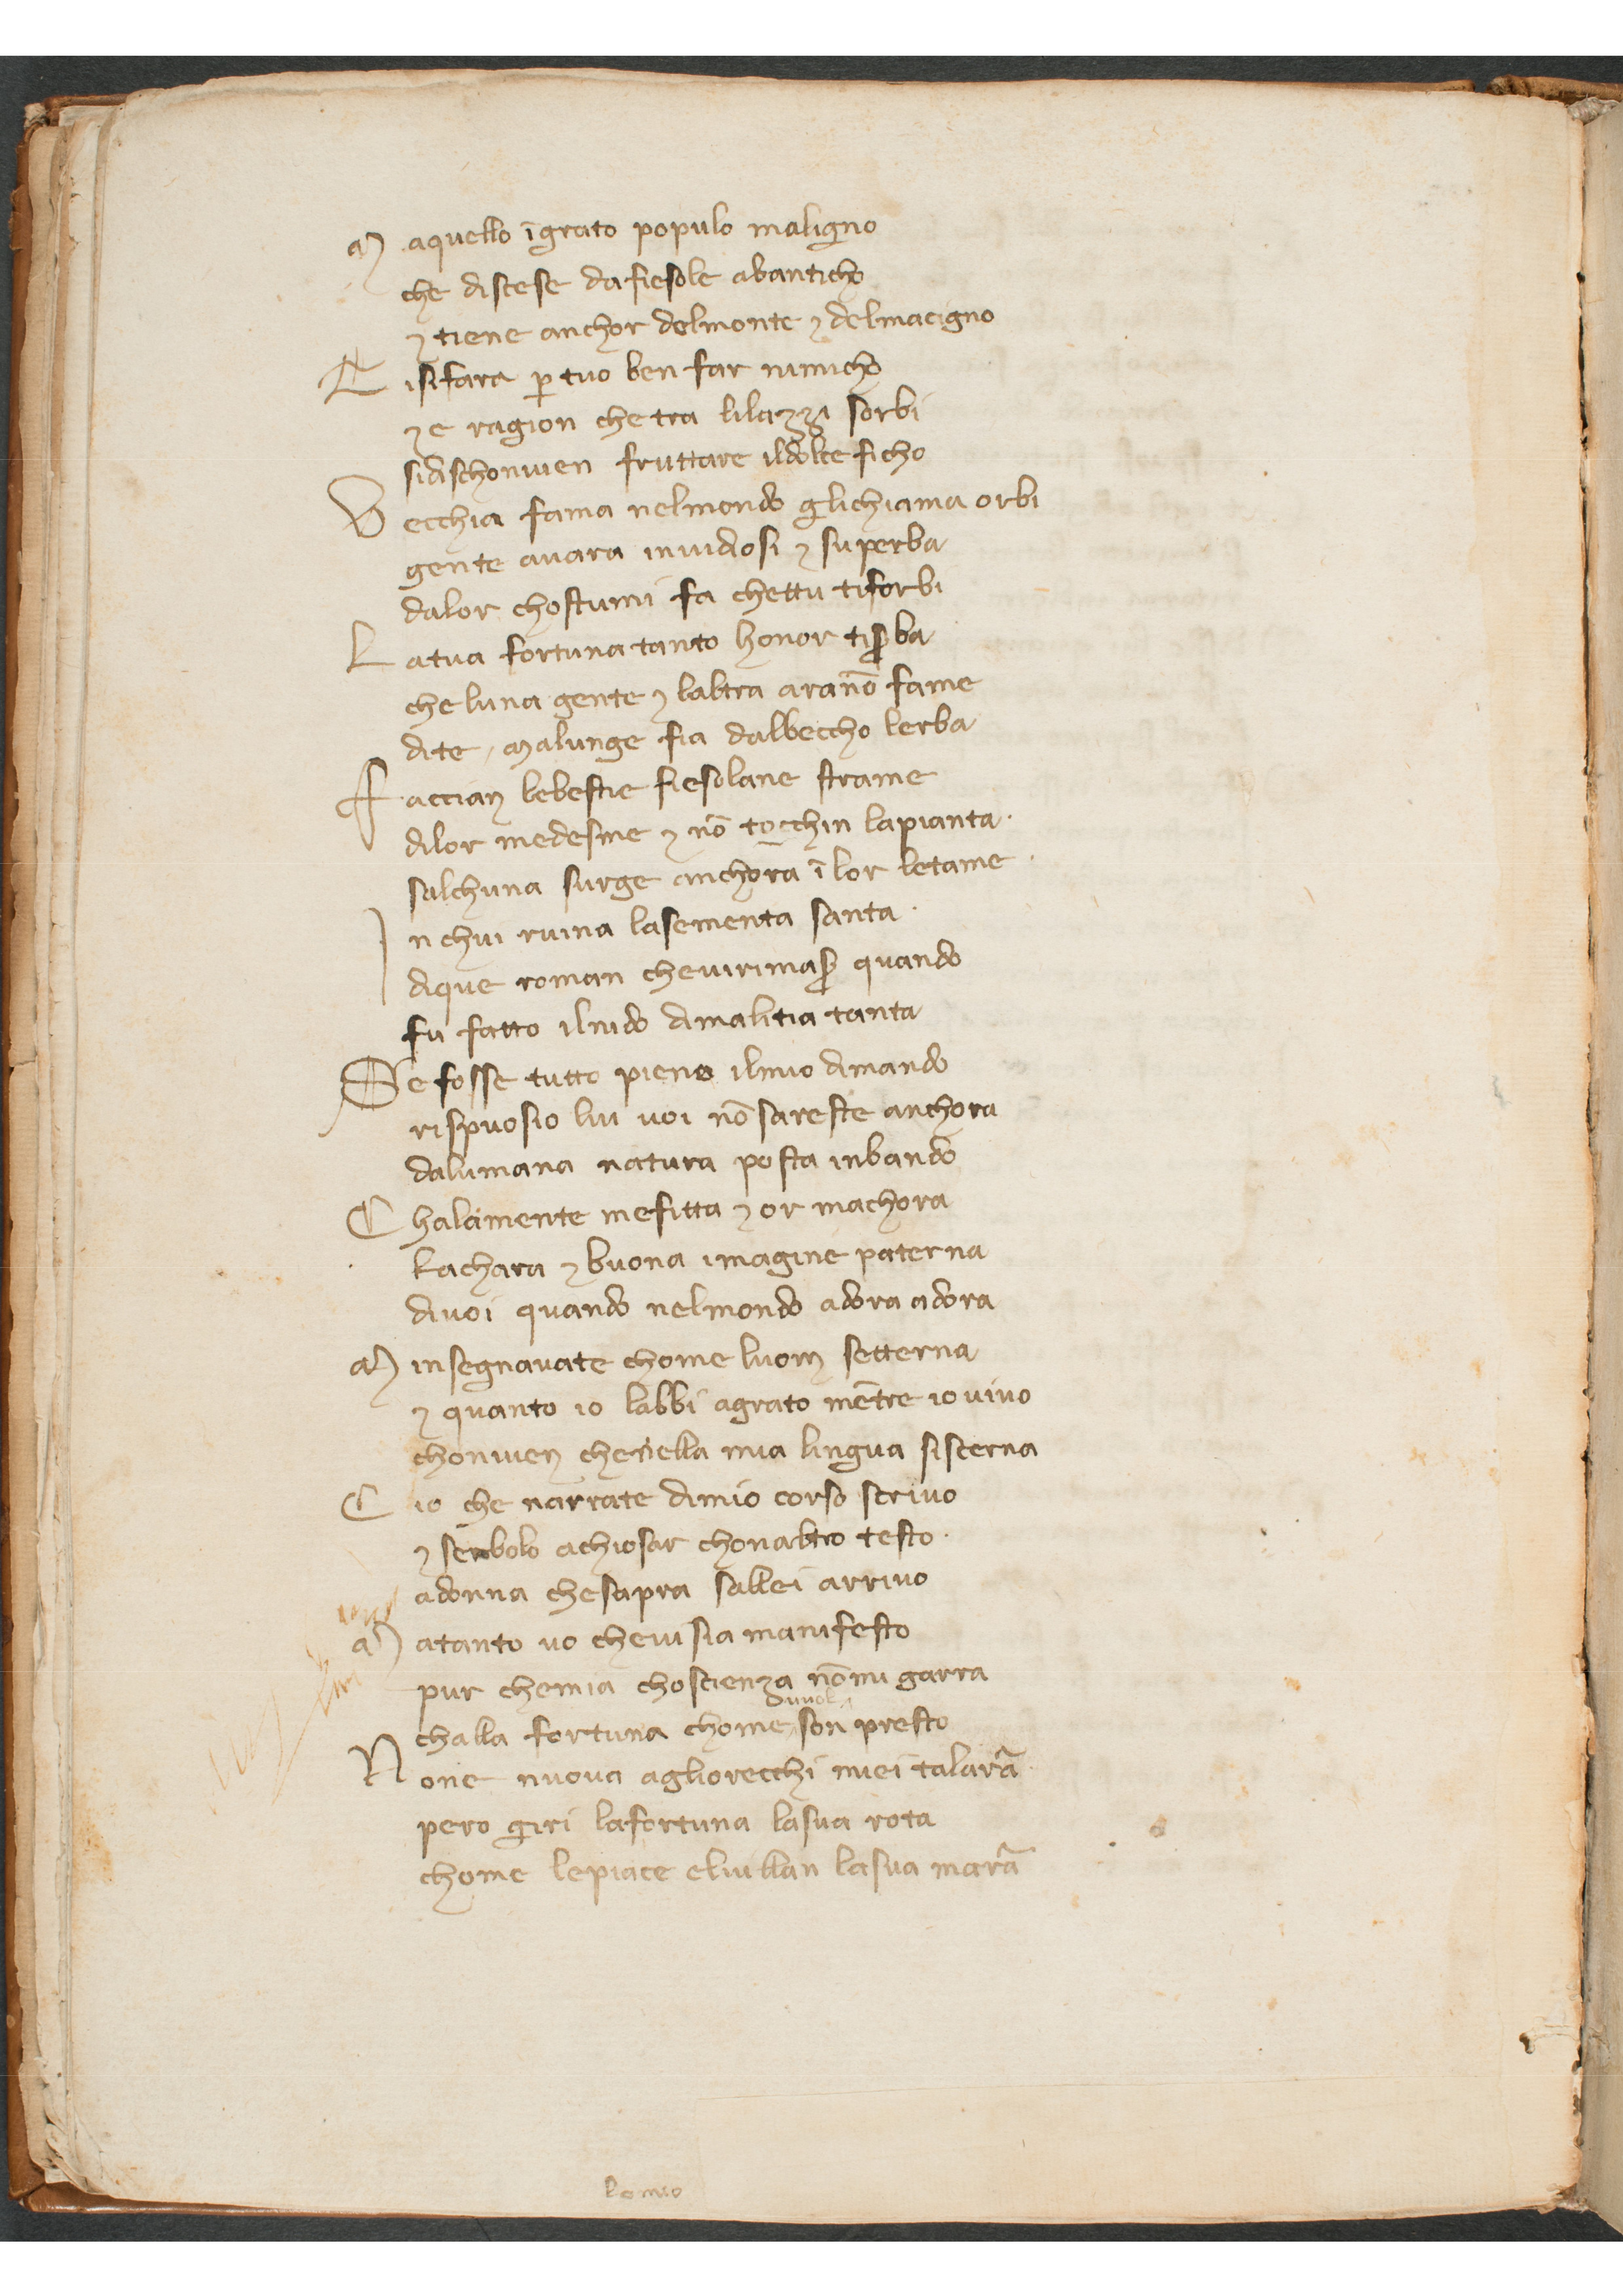 M aquello īgrato populo maligno
che discese dafiesole abanticho
⁊ tiene anchor delmonte ⁊ delmacigno
T isifara ꝑ tuo ben far nimicho
⁊ e ragion che tra lilazzi sorbi
sidischonuien fruttare ildolce ficho
V ecchia fama nelmondo glichiama orbi
gente auara inuidiosi ⁊ superba
dalor chostumi fa chettu tiforbi
L atua fortuna tanto honor tiẜba
che luna gente ⁊ laltra arañō fame
dite, malunge fia dalbeccho lerba
F accian lebestie fiesolane strame
dilor medesme ⁊ nō tocchin lapianta.
salchuna surge anchora ī lor letame.
I n chui ruina lasementa santa.
dique roman cheuirimaẜ quando
fu fatto ilnido dimalitia tanta
Se fosse tutto pieno ilmio dimando
rispuosio lui uoi nō sareste anchora
dalumana natura posta inbando
C halamente mefitta ⁊ or machora
lachara ⁊ buona imagine paterna
diuoi quando nelmondo adora adora
M insegnauate chome luom setterna
⁊ quanto io labbi agrato mētre io uiuo
chonuien chenella mia lingua siscerna
C io che narrate dimio corso scriuo
⁊ serbolo achiosar chonaltro testo.
adonna chesapra sallei arriuo
M atanto uo cheui sia manifesto
pur chemia choscienza nōmi garra
challa fortuna chome uuol son presto
N one nuoua agliorecchi miei talarā.
pero giri lafortuna lasua rota
chome lepiace eluillan lasua marā
lomio